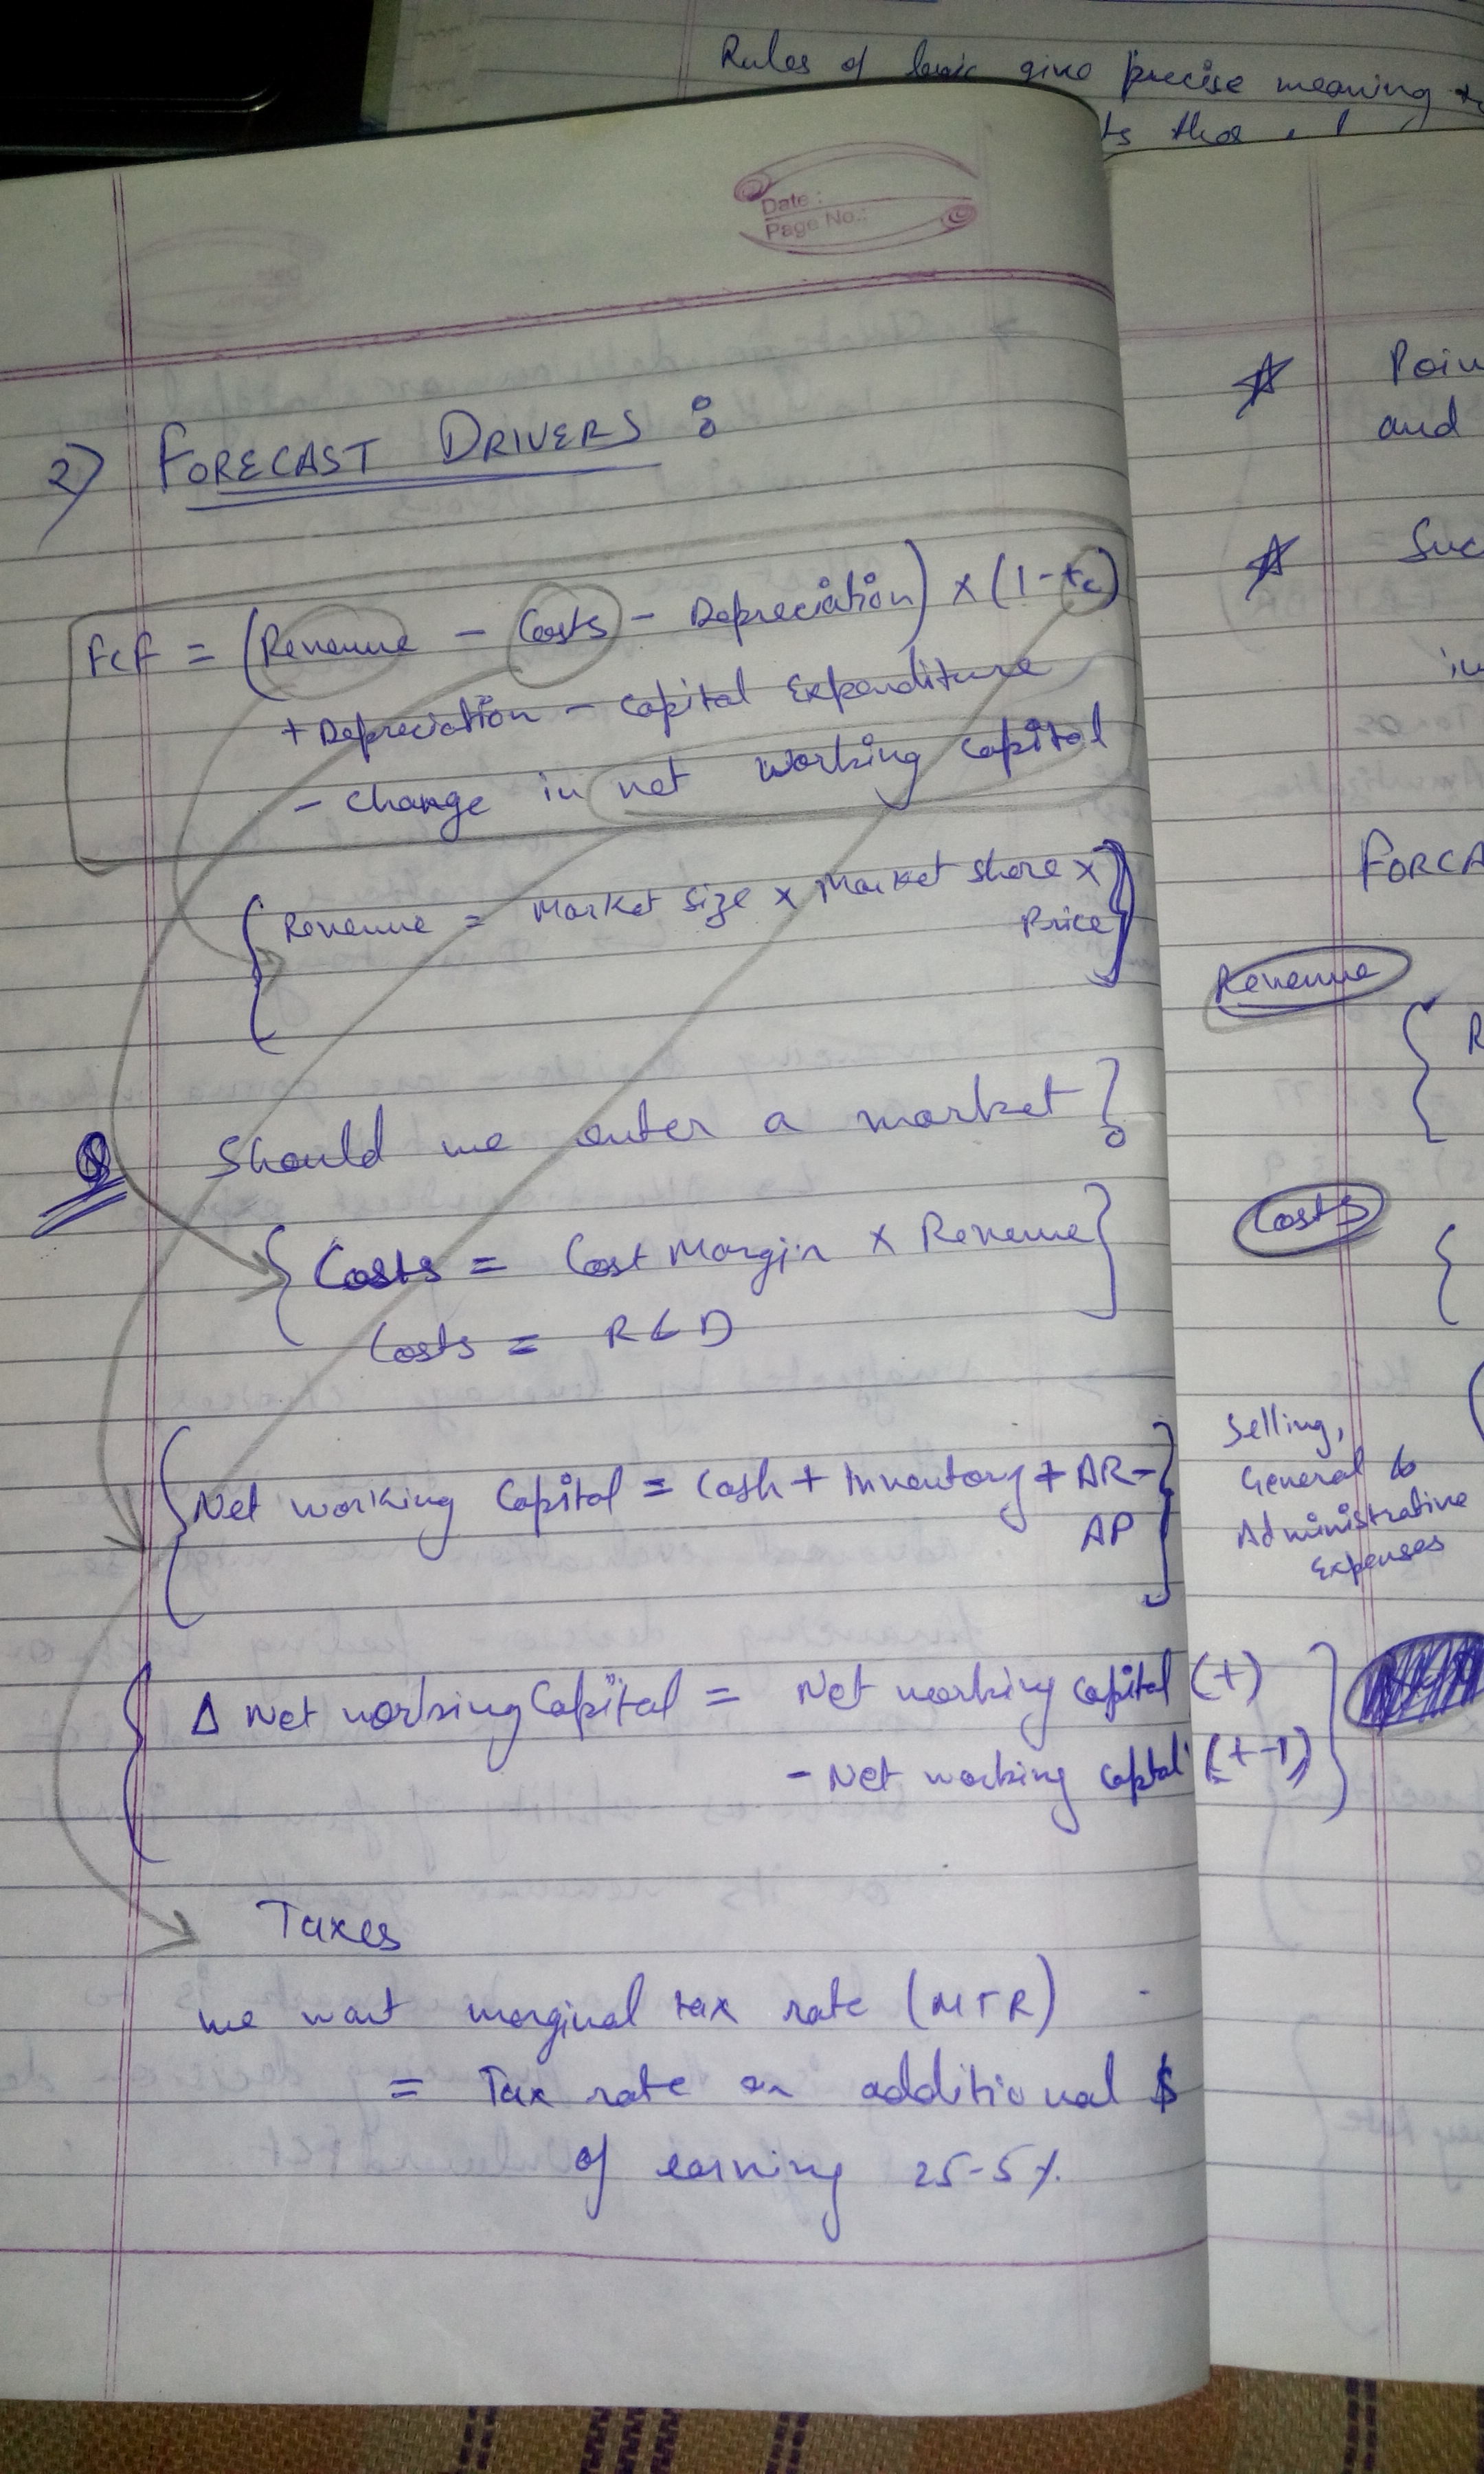 Rules of logic give precise meaning to
Date :
Page No.:
2) FORECAST DRIVERS :
FCF = (Revenue - Costs - Depreciation) × (1-tc)
+ Depreciation - Capital Expenditure
- change in net working capital
{Revenue = Market size × Market share ×
Price}
Q Should we enter a market?
{Costs = Cost Margin × Revenue}
Costs = R&D
{Net working Capital = Cash + Inventory + AR -
AP}
{Δ Net working Capital = Net working capital (t)
- Net working captal (t-1)}
Taxes
we want marginal tax rate (MTR)
= Tax rate on additional $
of earning 25-5%.
Poin
and
Suc
in
FORCA
Revenue
{ R
Costs
{
Selling,
General &
Administrative
Expenses